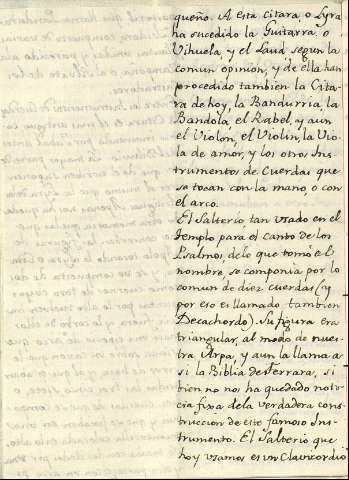 queño. A esta Citara, o Lyra
ha sucedido la Guitarra o
Vihuela, y el Laud segun la
comun opinion, y de ella han
procedido tambien la Cita-
ra de hoy, la Bandurria, la
Bandola, el Rabel, y aun
el Violón, el Violin, la Vio-
la de amor, y los otros Ins-
trumentos de Cuerdas que
se tocan con la mano, o con
el arco.
El Salterio, tan usado en el
templo para el canto de los
Psalmos, de lo que tomó el
nombre, se componia por lo
comun de diez cuerdas (y
por eso es llamado tambien
Decachordo). Su figura era
triangular, al modo de nues-
tra Arpa, y aun la llama a-
si la Biblia de Ferrara, si
bien no nos ha quedado noti-
cia fixa de la verdadera cons-
truccion de este famoso Ins-
trumento. El Salterio que
hoy usamos es un Clavicordio